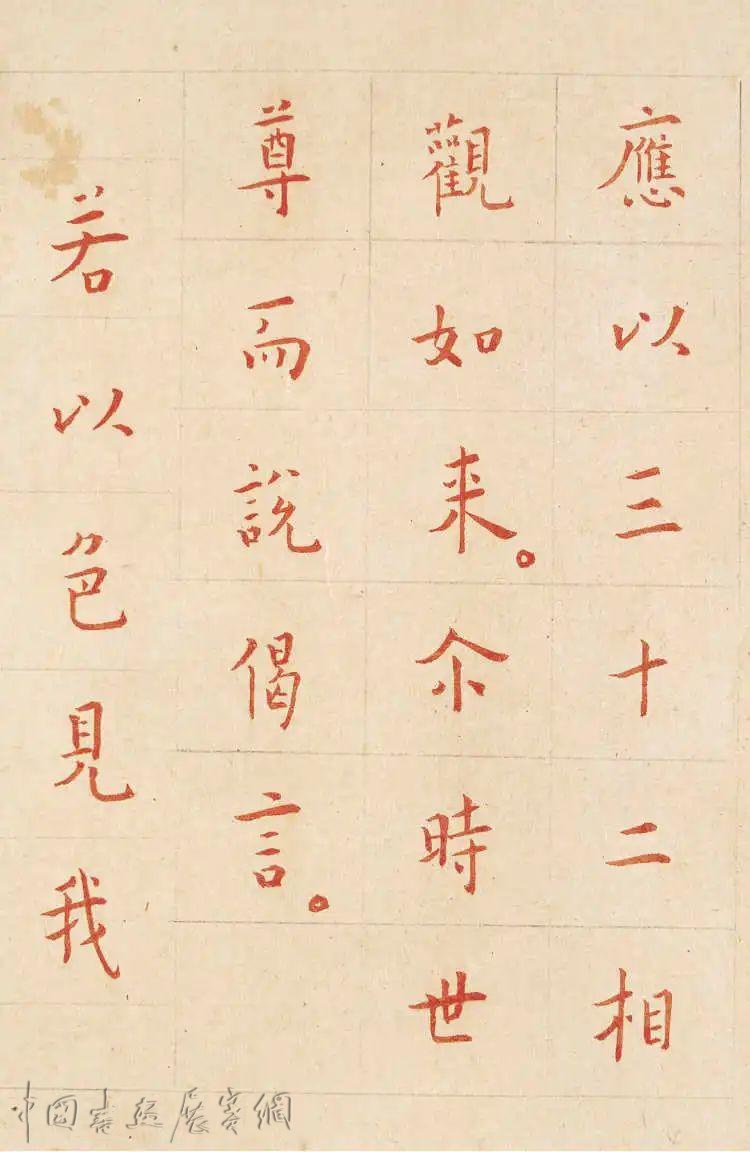 應以三十二相
觀如来。尒時世
尊而說偈言。
若以色見我
中國書畫展賽網